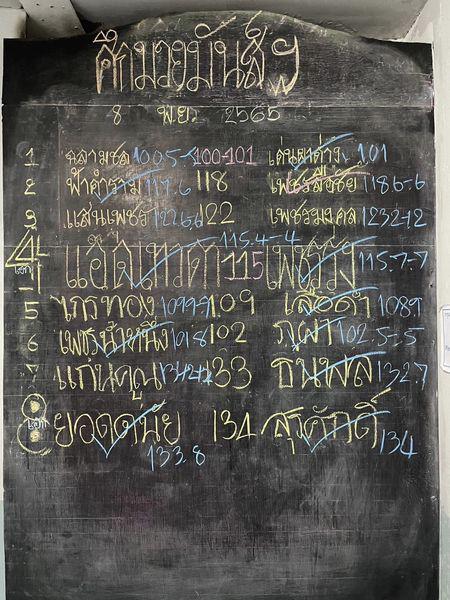 ศึกมวยมันส์ฯ
8 พ.ย. 2565
1 ฉลามชล 100.5-5 100-101 เด่นผาด่าง 101
2 ฟ้าคำราม 117.6 118 เพชรสีชัย 118.6-6
3 แสนเพชร 122.6-6 122 เพชรมงคล 123.2-2
4 เอก 1 แอ๊ดเทวดา 115.4-4 115 เพชรรุ่ง 115.7-7
5 ไกรทอง 109.9-9 109 เสือดำ 108.9
6 เพชรน้ำหนึ่ง 101.8 102 ภูผา 102.5-5
7 แทนคุณ 134.2-2 133 ธนพล 132.7
8 เอก ยอดดนัย 133.8 134 สุรศักดิ์ 134